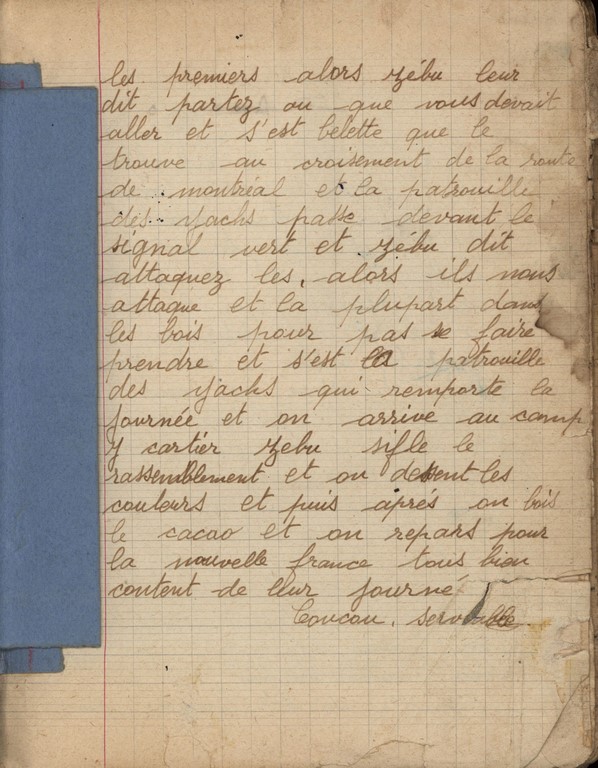 les premiers alors zébu leur
dit partez ou que vous devait
aller et s'est belette que le
trouve au croisement de la route
de montréal et la patrouille
des yachs passe devant le
signal vert et zébu dit
attaquez les, alors ils nous
attaque et la plupart dans
les bois pour pas se faire
prendre et s'est la patrouille
des yachs qui remporte la
journée et on arrive au camp
y cartier zebu sifle le
rassemblement et on dessent les
couleurs et puis aprés on bois
le cacao et on repars pour
la nouvelle france tous bien
content de lleur journé
Coucou.